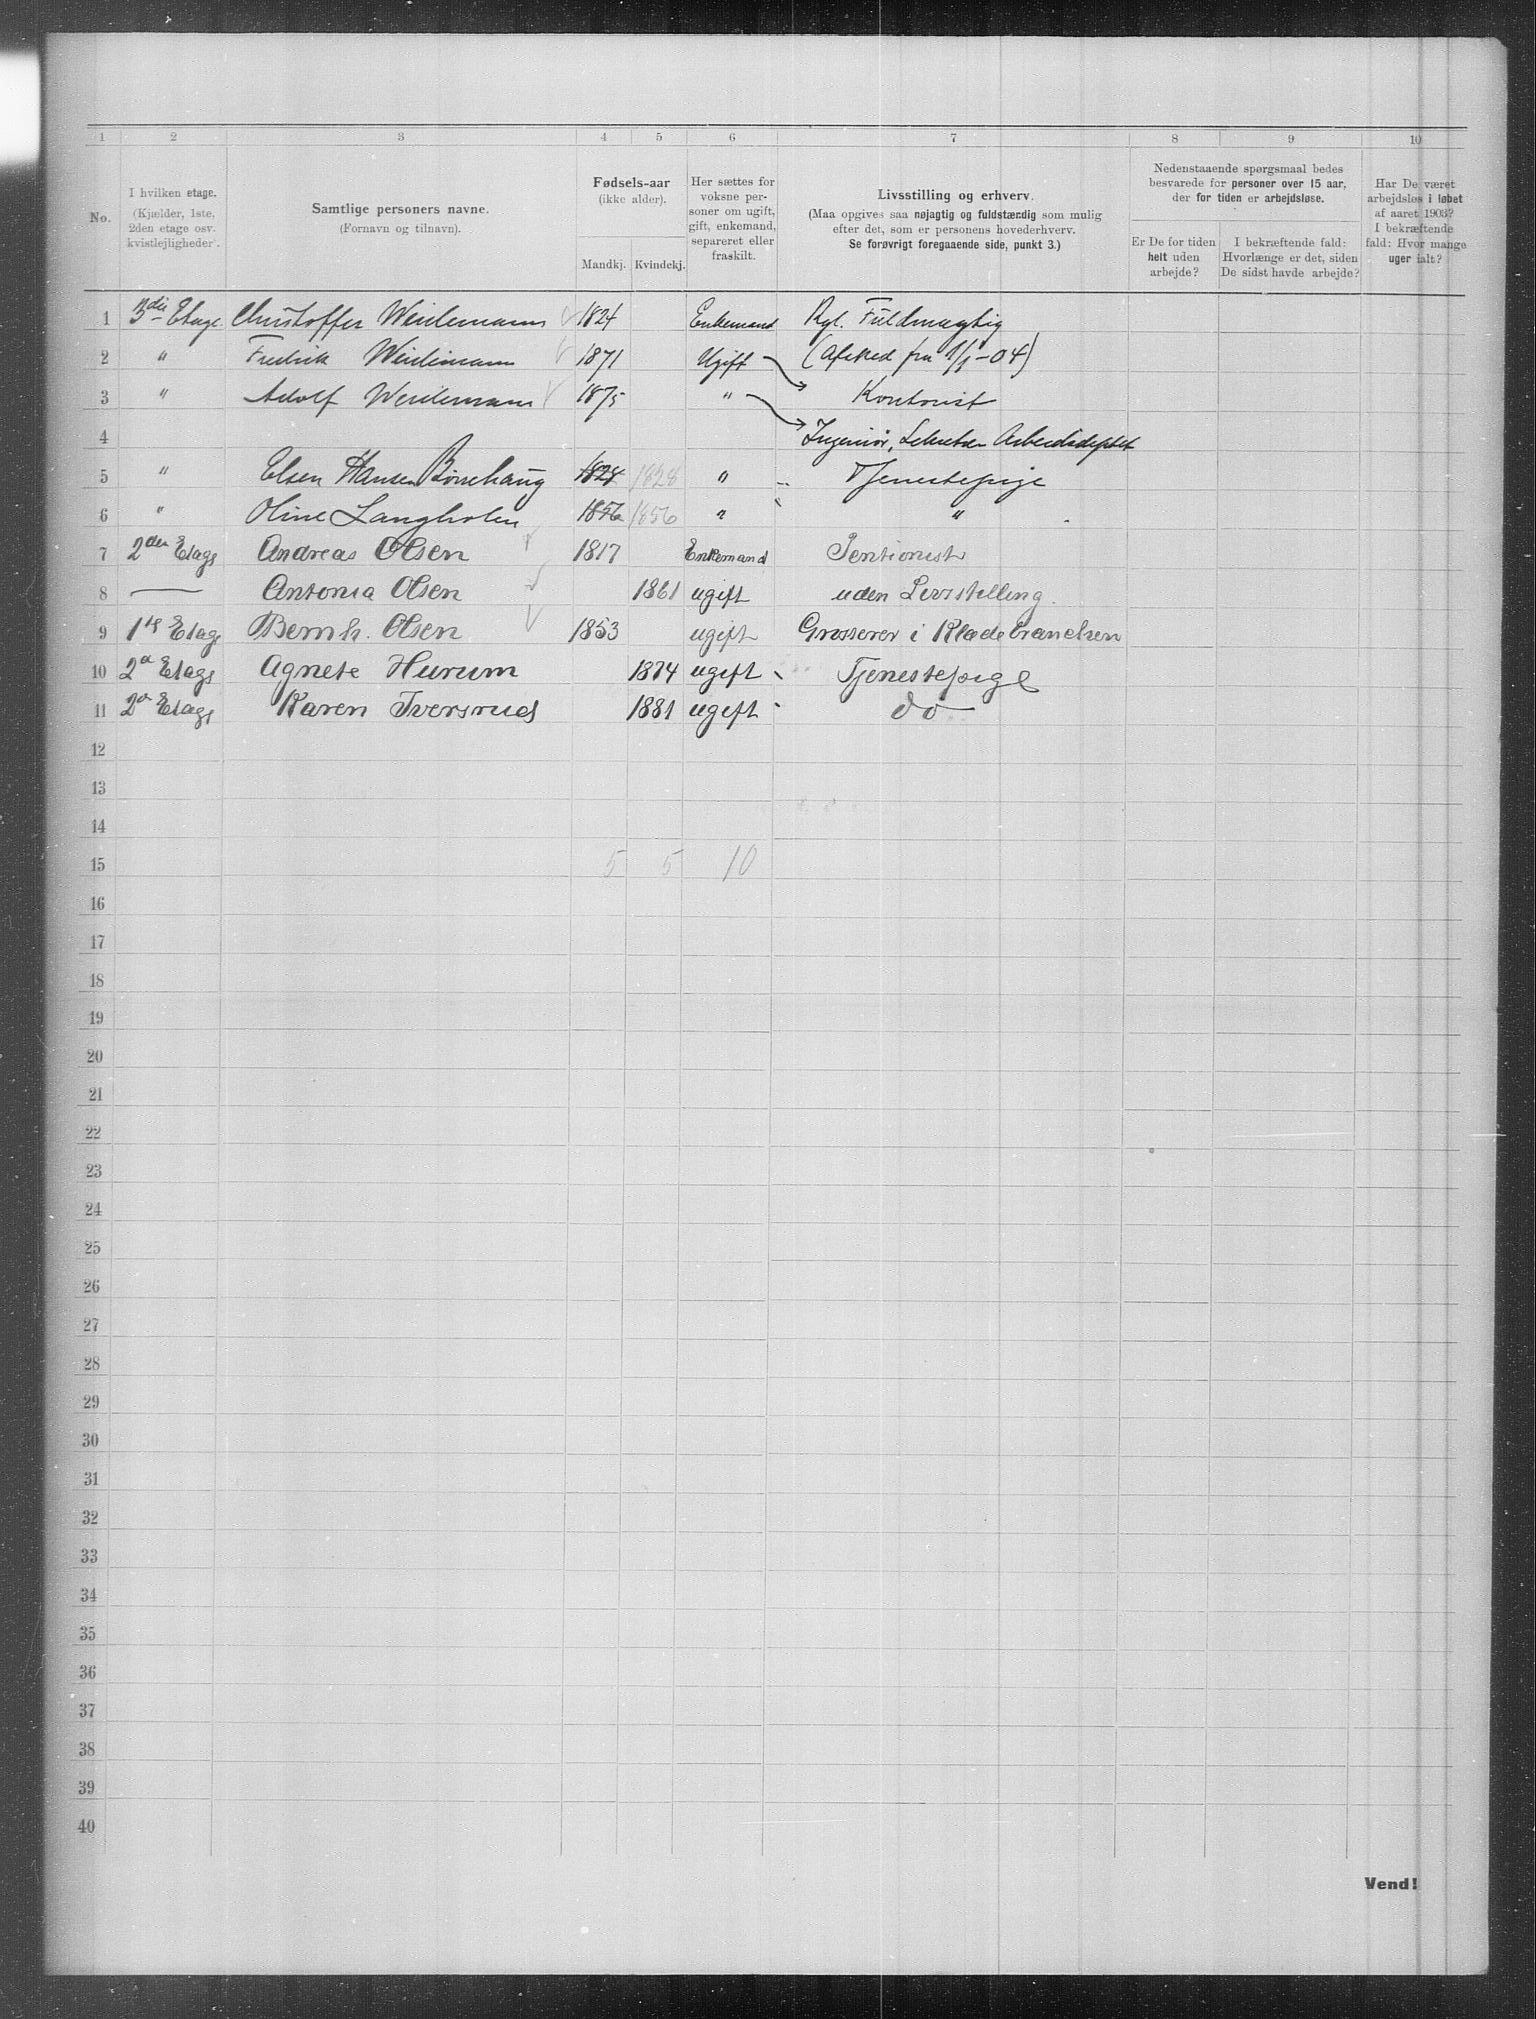 1 2 3 4 5 6 7 8 9 10
No.
I hvilken etage.
(Kjælder, 1ste,
2den etage osv.
kvistlejligheder).
Samtlige personers navne.
(Fornavn og tilnavn).
Fødsels-aar
(ikke alder).
Mandkj. Kvindekj.
Her sættes for
voksne per-
soner om ugift,
gift, enkemand,
separeret eller
fraskilt.
Livsstilling og erhverv.
(Maa opgives saa nøjagtig og fuldstændig som mulig
efter det, som er personens hovederhverv.
Se forøvrigt foregaaende side, punkt 3.)
Nedenstaaende spørgsmaal bedes
besvarede for personer over 15 aar,
der for tiden er arbejdsløse.
Er De for tiden
helt uden
arbejde?
I bekræftende fald:
Hvorlænge er det, siden
De sidst havde arbejde?
Har De været
arbejdsløs i løbet
af aaret 1903?
I bekræftende
fald: Hvor mange
uger ialt?
1 3die Etage Christoffer Weidemann 1824 Enkemand Rgl. Fuldmægtig
2 " Fredrik Weidemann 1871 Ugift (Afsked fra 1/1-04)
3 " Adolf Weidemann 1875 " Kontorist
4 Ingeniør, Sekretær Arbeidsdeptet
5 " Elsen Hansen 1828 1828 " Tjenestepige
6 " Oline Langholen 1856 1856 " "
7 2den Etage Andreas Olsen 1817 Enkemand Pentionist
8 — Antonia Olsen 1861 ugift uden Livsstilling.
9 1ste Etage Bernh. Olsen 1853 ugift Grosserer i Klædebranchen
10 2d Etage Agnete Hurum 1874 ugift Tjenestepige
11 2d Etage Karen Iversrud 1881 ugift do
12
13
14
15 5 5 10
16
17
18
19
20
21
22
23
24
25
26
27
28
29
30
31
32
33
34
35
36
37
38
39
40
Vend!